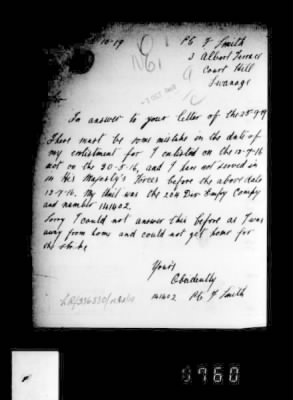 10-19 Pte F Smith
3 Albert Terrace
Court Hill
Swanage
In answer to your letter of the 25-9-19
There must be some mistake in the date of
my enlistment for I enlisted on the 13-7-16
not on the 30-5-16, and I have not served in
in His Majesty's Forces before the above date
13-7-16. My Unit was the 204 Emp Compy
and number 141402.
Sorry I could not answer this before as I was
away from home and could not get home for
the strike
Yours
Obediently
141402 Pte F Smith
0760